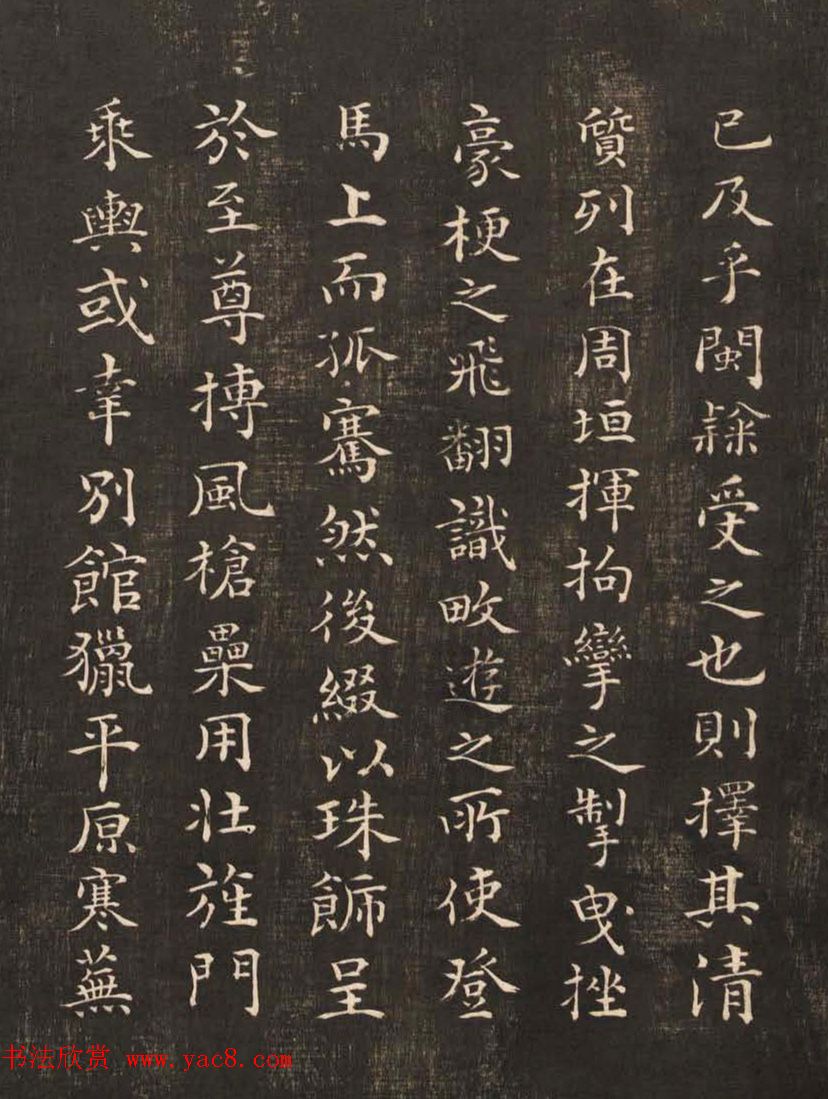 已及乎閩隸受之也則擇其清
質列在周垣揮拘攣之掣曳挫
豪梗之飛翻識畋遊之所使登
馬上而孤騫然後綴以珠飾呈
於至尊搏風槍纍用壯旌門
乘輿或幸別館獵平原寒蕪
书法欣赏 www.yac8.com